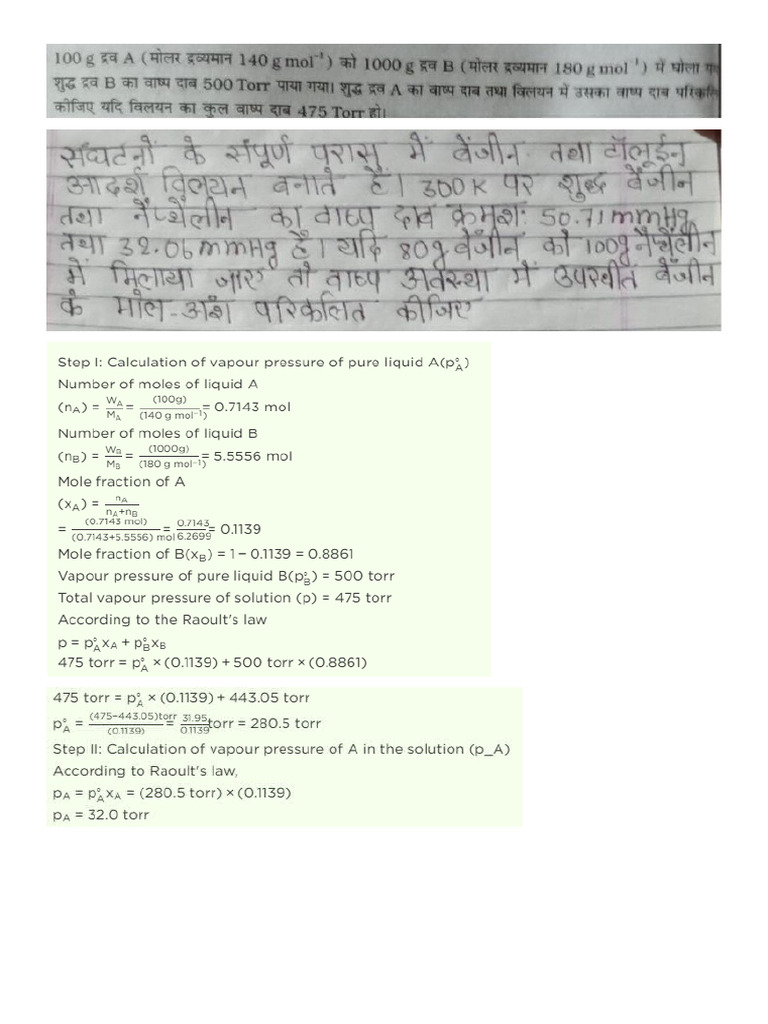 100 g द्रव A (मोलर द्रव्यमान 140 g mol⁻¹) को 1000 g द्रव B (मोलर द्रव्यमान 180 g mol⁻¹) में घोला
शुद्ध द्रव B का वाष्प दाब 500 Torr पाया गया। शुद्ध द्रव A का वाष्प दाब तथा विलयन में उसका वाष्प दाब
कीजिए यदि विलयन का कुल वाष्प दाब 475 Torr हो।
संघटनों के संपूर्ण परास में बेंजीन तथा टॉलूईन
आदर्श विलयन बनाते हैं। 300K पर शुद्ध बेंजीन
तथा नैफ्थेलीन का वाष्प दाब क्रमशः 50.71mmHg
तथा 32.06mmHg है। यदि 80g बेंजीन को 100g नैफ्थेलीन
में मिलाया जाए तो वाष्प अवस्था में उपस्थीत बेंजीन
के मोल-अंश परिकलित कीजिए
Step I: Calculation of vapour pressure of pure liquid A(p°A)
Number of moles of liquid A
(nA) = WA/MA = (100g)/(140 g mol⁻¹) = 0.7143 mol
Number of moles of liquid B
(nB) = WB/MB = (1000g)/(180 g mol⁻¹) = 5.5556 mol
Mole fraction of A
(xA) = nA/nA+nB
= (0.7143 mol)/(0.7143+5.5556) mol = 0.7143/6.2699 = 0.1139
Mole fraction of B(xB) = 1 – 0.1139 = 0.8861
Vapour pressure of pure liquid B(p°B) = 500 torr
Total vapour pressure of solution (p) = 475 torr
According to the Raoult's law
p = p°AxA + p°BxB
475 torr = p°A × (0.1139) + 500 torr × (0.8861)
475 torr = p°A × (0.1139) + 443.05 torr
p°A = (475–443.05)torr/(0.1139) = 31.95/0.1139 torr = 280.5 torr
Step II: Calculation of vapour pressure of A in the solution (p_A)
According to Raoult's law,
pA = p°AxA = (280.5 torr) × (0.1139)
pA = 32.0 torr